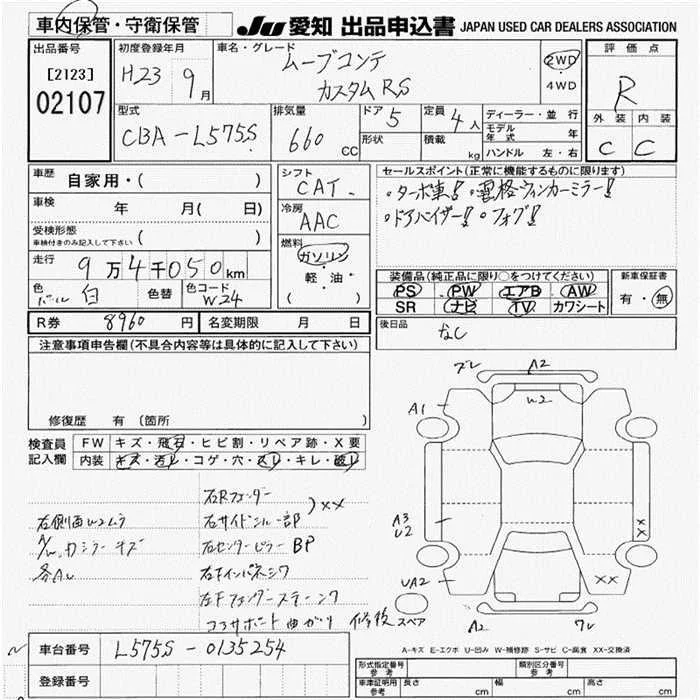 車内保管・守衛保管 JU 愛知 出品申込書 JAPAN USED CAR DEALERS ASSOCIATION
出品番号 [2123] 02107
初度登録年月 H23 9月
車名・グレード ムーブコンテ カスタムRS
2WD
4WD
評価点 R
外装 内装
C C
型式 CBA-L575S
排気量 660 CC
ドア 5
形状
定員 4人
積載 kg
ディーラー・並行
モデル年式 年
ハンドル 左・右
車歴 自家用・( )
車検 年 月( 日)
受検形態 ( )
車検付きのみ記入して下さい
走行 9万4千050km
色 パール白 色替 色コード W24
シフト CAT
冷房 AAC
燃料 ガソリン
軽・油
( )
セールスポイント(正常に機能するものに限ります)
・ターボ車!! ・電格ウィンカーミラー!!
・ドアバイザー!! ・フォグ!!
装備品(純正品に限り○をつけてください)
PS PW エアB AW
SR ナビ TV カワシート
新車保証書
有・無
R券 8960円 名変期限 月 日
後日品 なし
注意事項申告欄(不具合内容等は具体的に記入して下さい)
修復歴 有 (箇所 )
検査員記入欄
FW キズ・飛石・ヒビ割・リペア跡・X要
内装 キズ・汚レ・コゲ・穴・スレ・キレ・破レ
右Rフェンダー
右サイドシル一部
XX
右センターピラー BP
右Fインパネシワ
左Fフェンダーステーシワ
コアサポート曲がり 修後
左側面W2ムラ
キズ
各AU
ズレ A2
W2
A1
A3
U2
UA2
XX
XX
スペア
A2 ワレ
A-キズ E-エクボ U-凹み W-補修跡 S-サビ C-腐食 XX-交換済
車台番号 L575S-0135254
登録番号
形式指定番号 参考
類別区分番号 参考
車庫証明用 参考 長さ cm 幅 cm 高さ cm